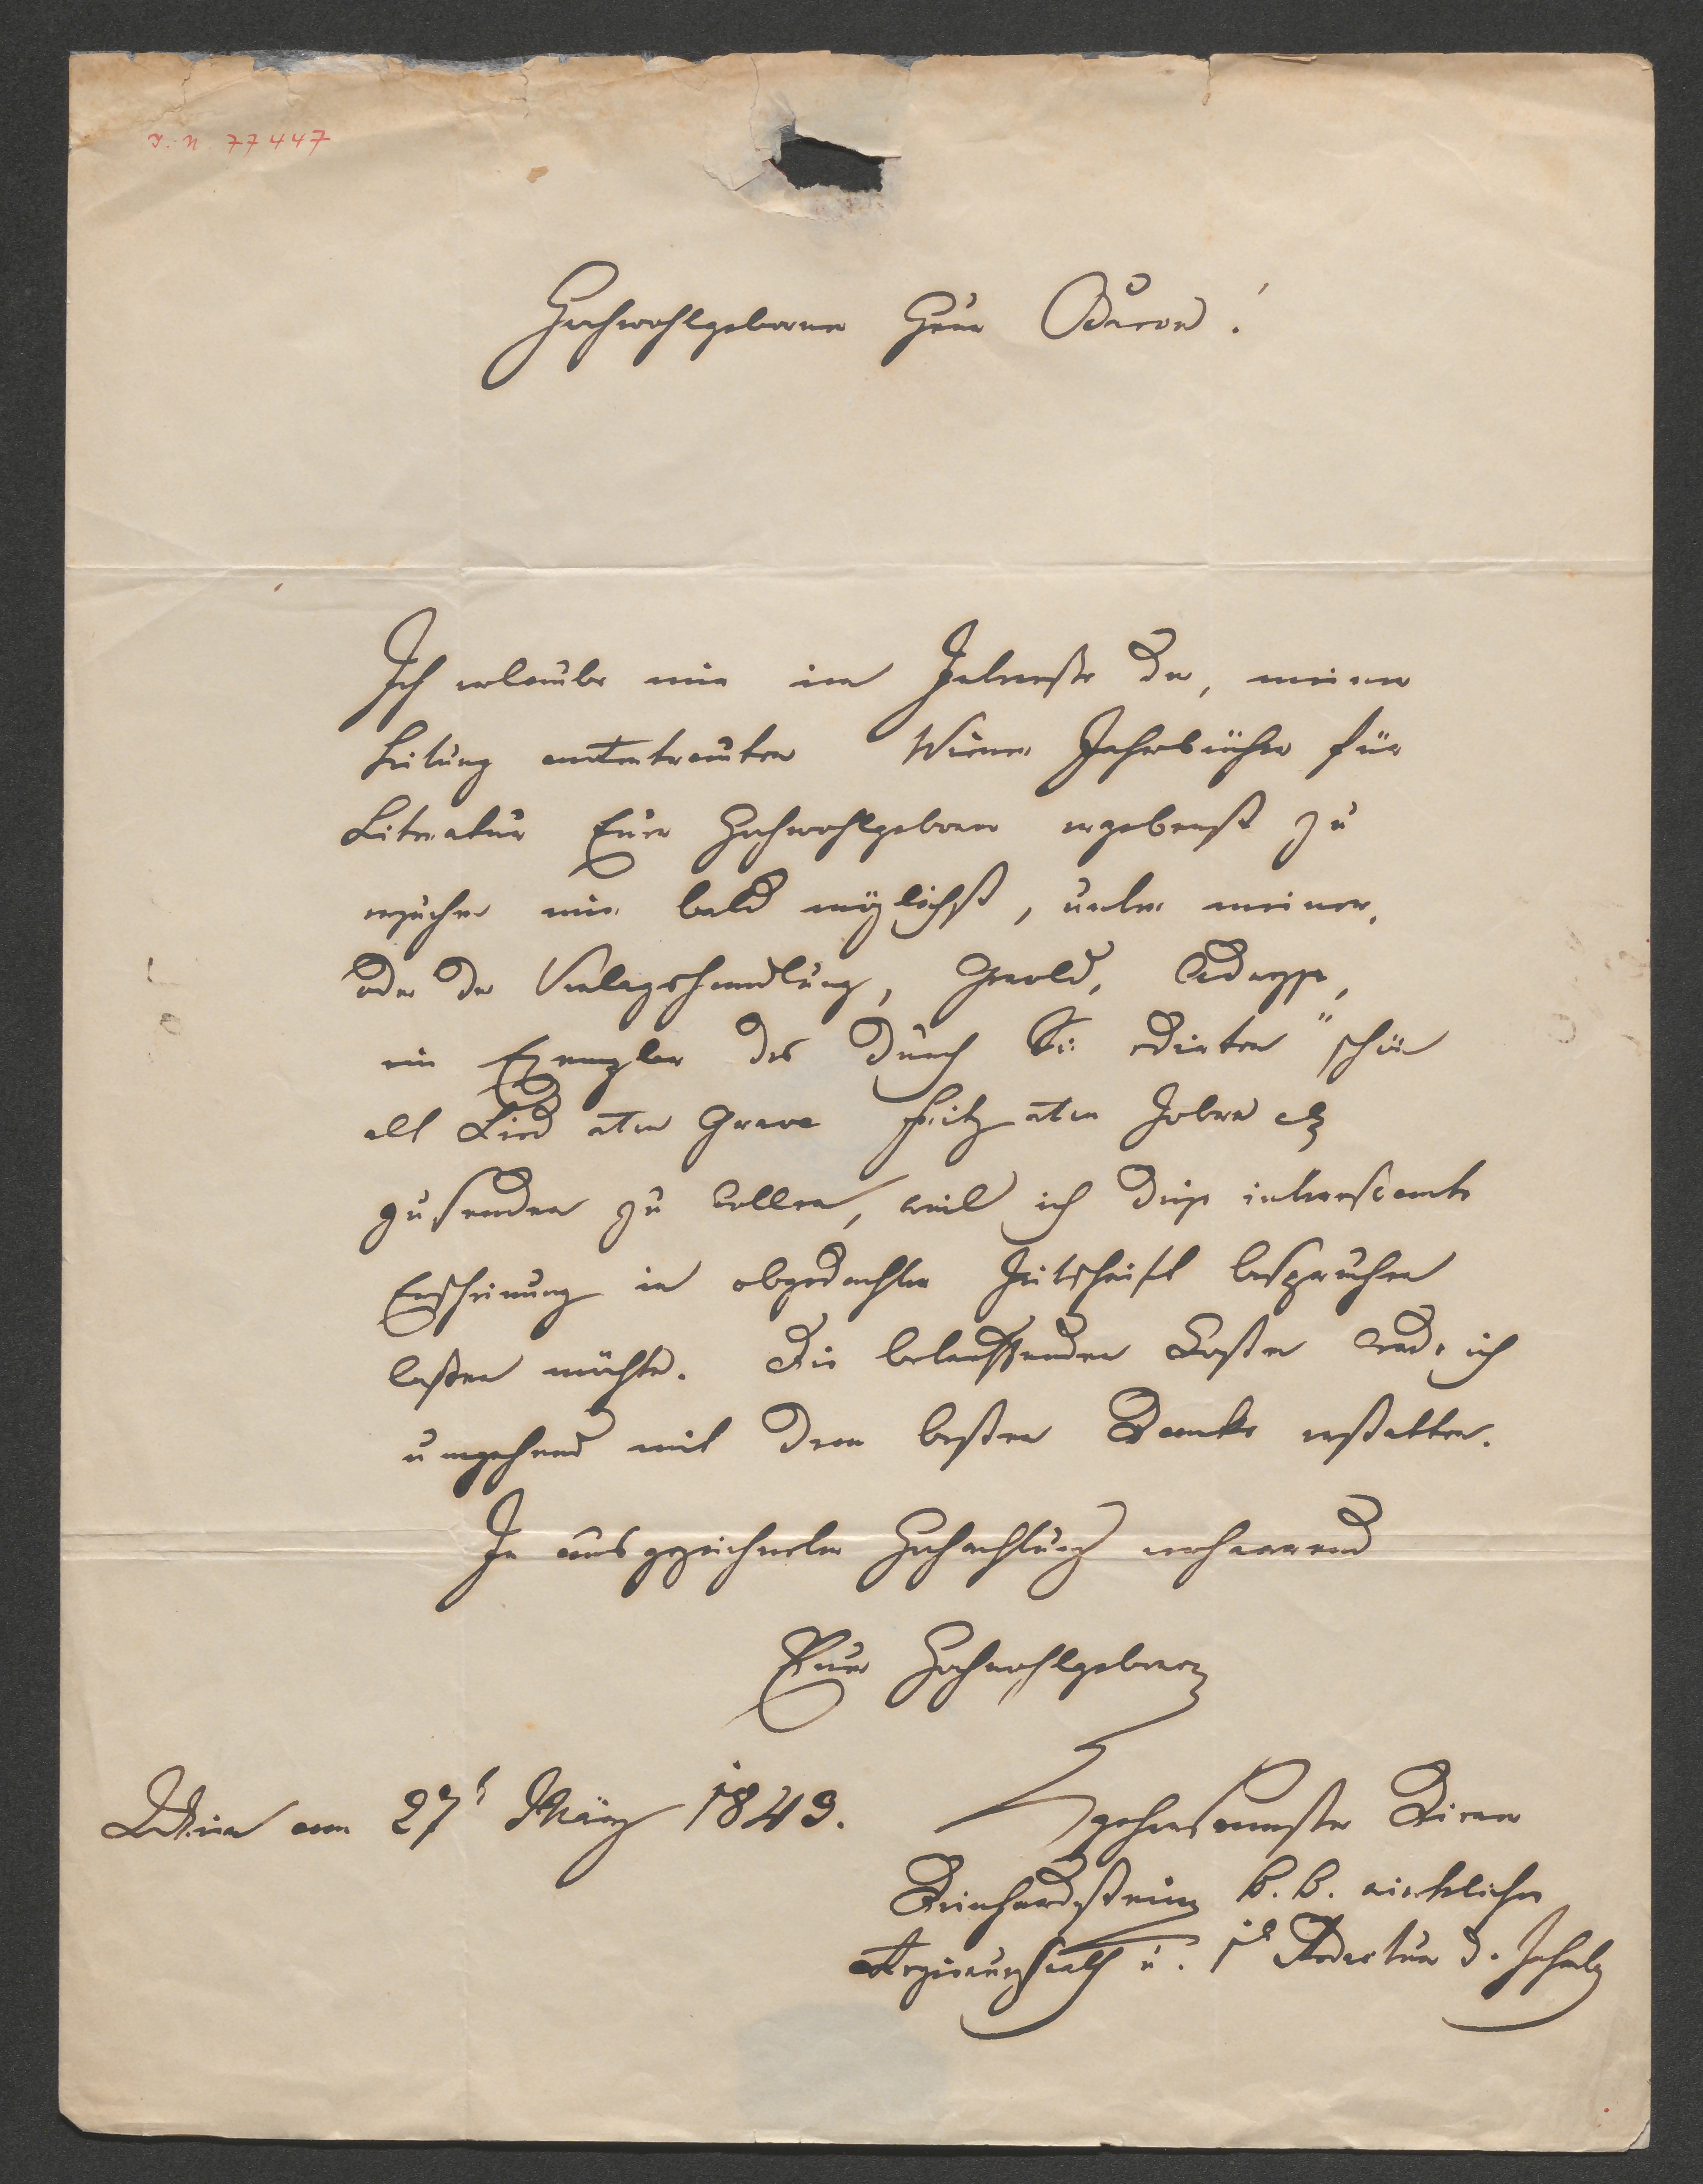 I. N. 77447
Hochwohlgeborner Herr Baron!
Ich erlaube mir im Interesse der, meiner
Leitung anvertrauten Wiener Jahrbücher für
Literatur Euer Hochwohlgeboren ergebenst zu
ersuchen mir bald möglichst, unter meiner,
oder der Verlagshandlung, Gerold, Adresse,
ein Exemplar des durch Sie edirten "schön
alt Lied von Grave Fritz von Zolre etz
zusenden zu wollen, weil ich diese interessante
Erscheinung in obgedachter Zeitschrift besprechen
lassen möchte. Die betreffenden Kosten werde ich
umgehend mit dem besten Danke erstatten.
In ausgezeichneter Hochachtung verharrend
Euer Hochwohlgeboren
Wien am 27t März 1843.
gehorsamster Diener
Deinhardstein k. k. wirklicher
Regierungsrath u. 1r Redacteur d. Jahrb